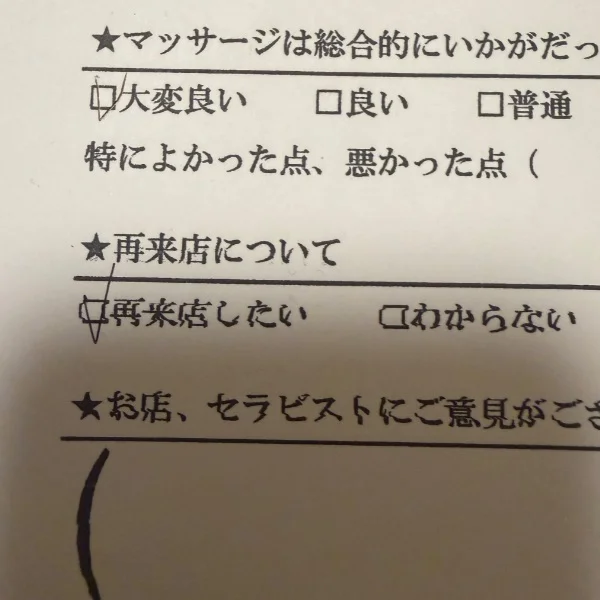 ★マッサージは総合的にいかがだっ
☑大変良い □良い □普通
特によかった点、悪かった点（
★再来店について
☑再来店したい □わからない
★お店、セラピストにご意見がござ
（